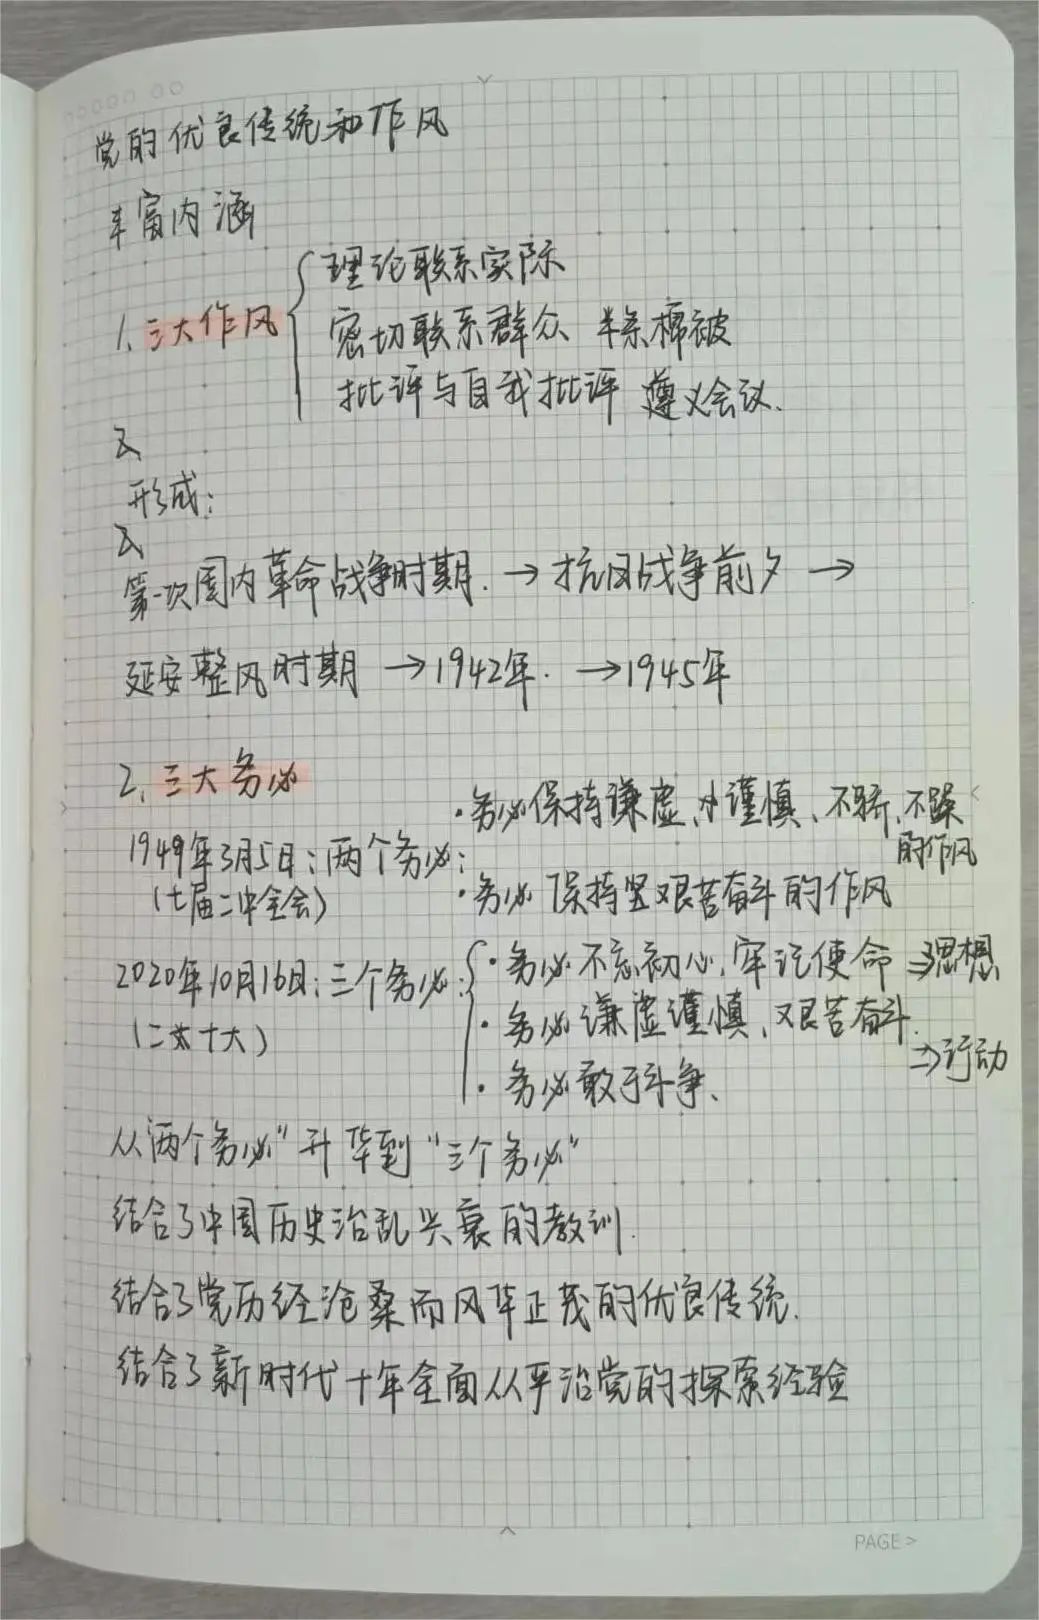 党的优良传统和作风
丰富内涵
1、三大作风
理论联系实际
密切联系群众 半条棉被
批评与自我批评 遵义会议.
形成:
第一次国内革命战争时期. →抗日战争前夕→
延安整风时期 →1942年. →1945年
2、三大务必
1949年3月5日:两个务必:
(七届二中全会)
·务必保持谦虚、谨慎、不骄、不躁
的作风
·务必保持艰苦奋斗的作风
2020年10月16日:三个务必:
(二十大)
·务必不忘初心,牢记使命⇒思想
·务必谦虚谨慎、艰苦奋斗.
⇒行动
·务必敢于斗争、
从“两个务必”升华到“三个务必”
结合了中国历史治乱兴衰的教训.
结合了党历经沧桑而风华正茂的优良传统.
结合了新时代十年全面从严治党的探索经验
PAGE >